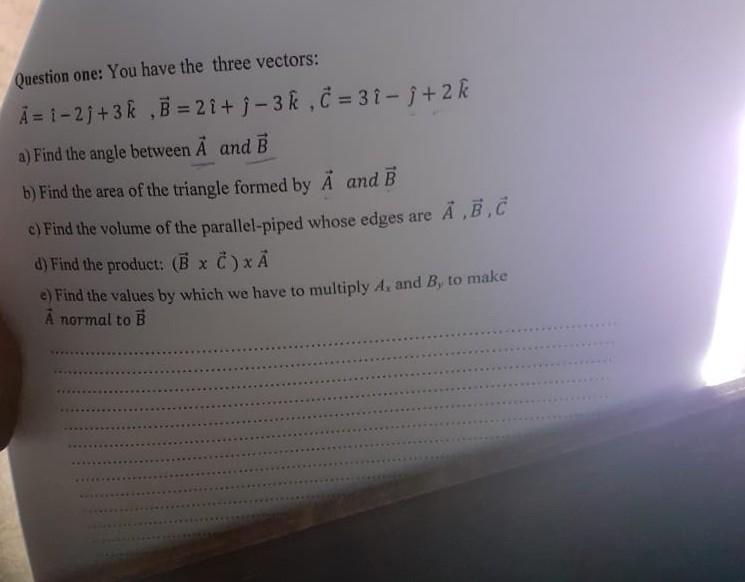 Question one: You have the three vectors:
A⃗ = î - 2ĵ + 3k̂ , B⃗ = 2î + ĵ - 3k̂ , C⃗ = 3î - ĵ + 2k̂
a) Find the angle between A⃗ and B⃗
b) Find the area of the triangle formed by A⃗ and B⃗
c) Find the volume of the parallel-piped whose edges are A⃗ , B⃗ , C⃗
d) Find the product: (B⃗ x C⃗) x A⃗
e) Find the values by which we have to multiply Aₓ and Bᵧ to make
A⃗ normal to B⃗